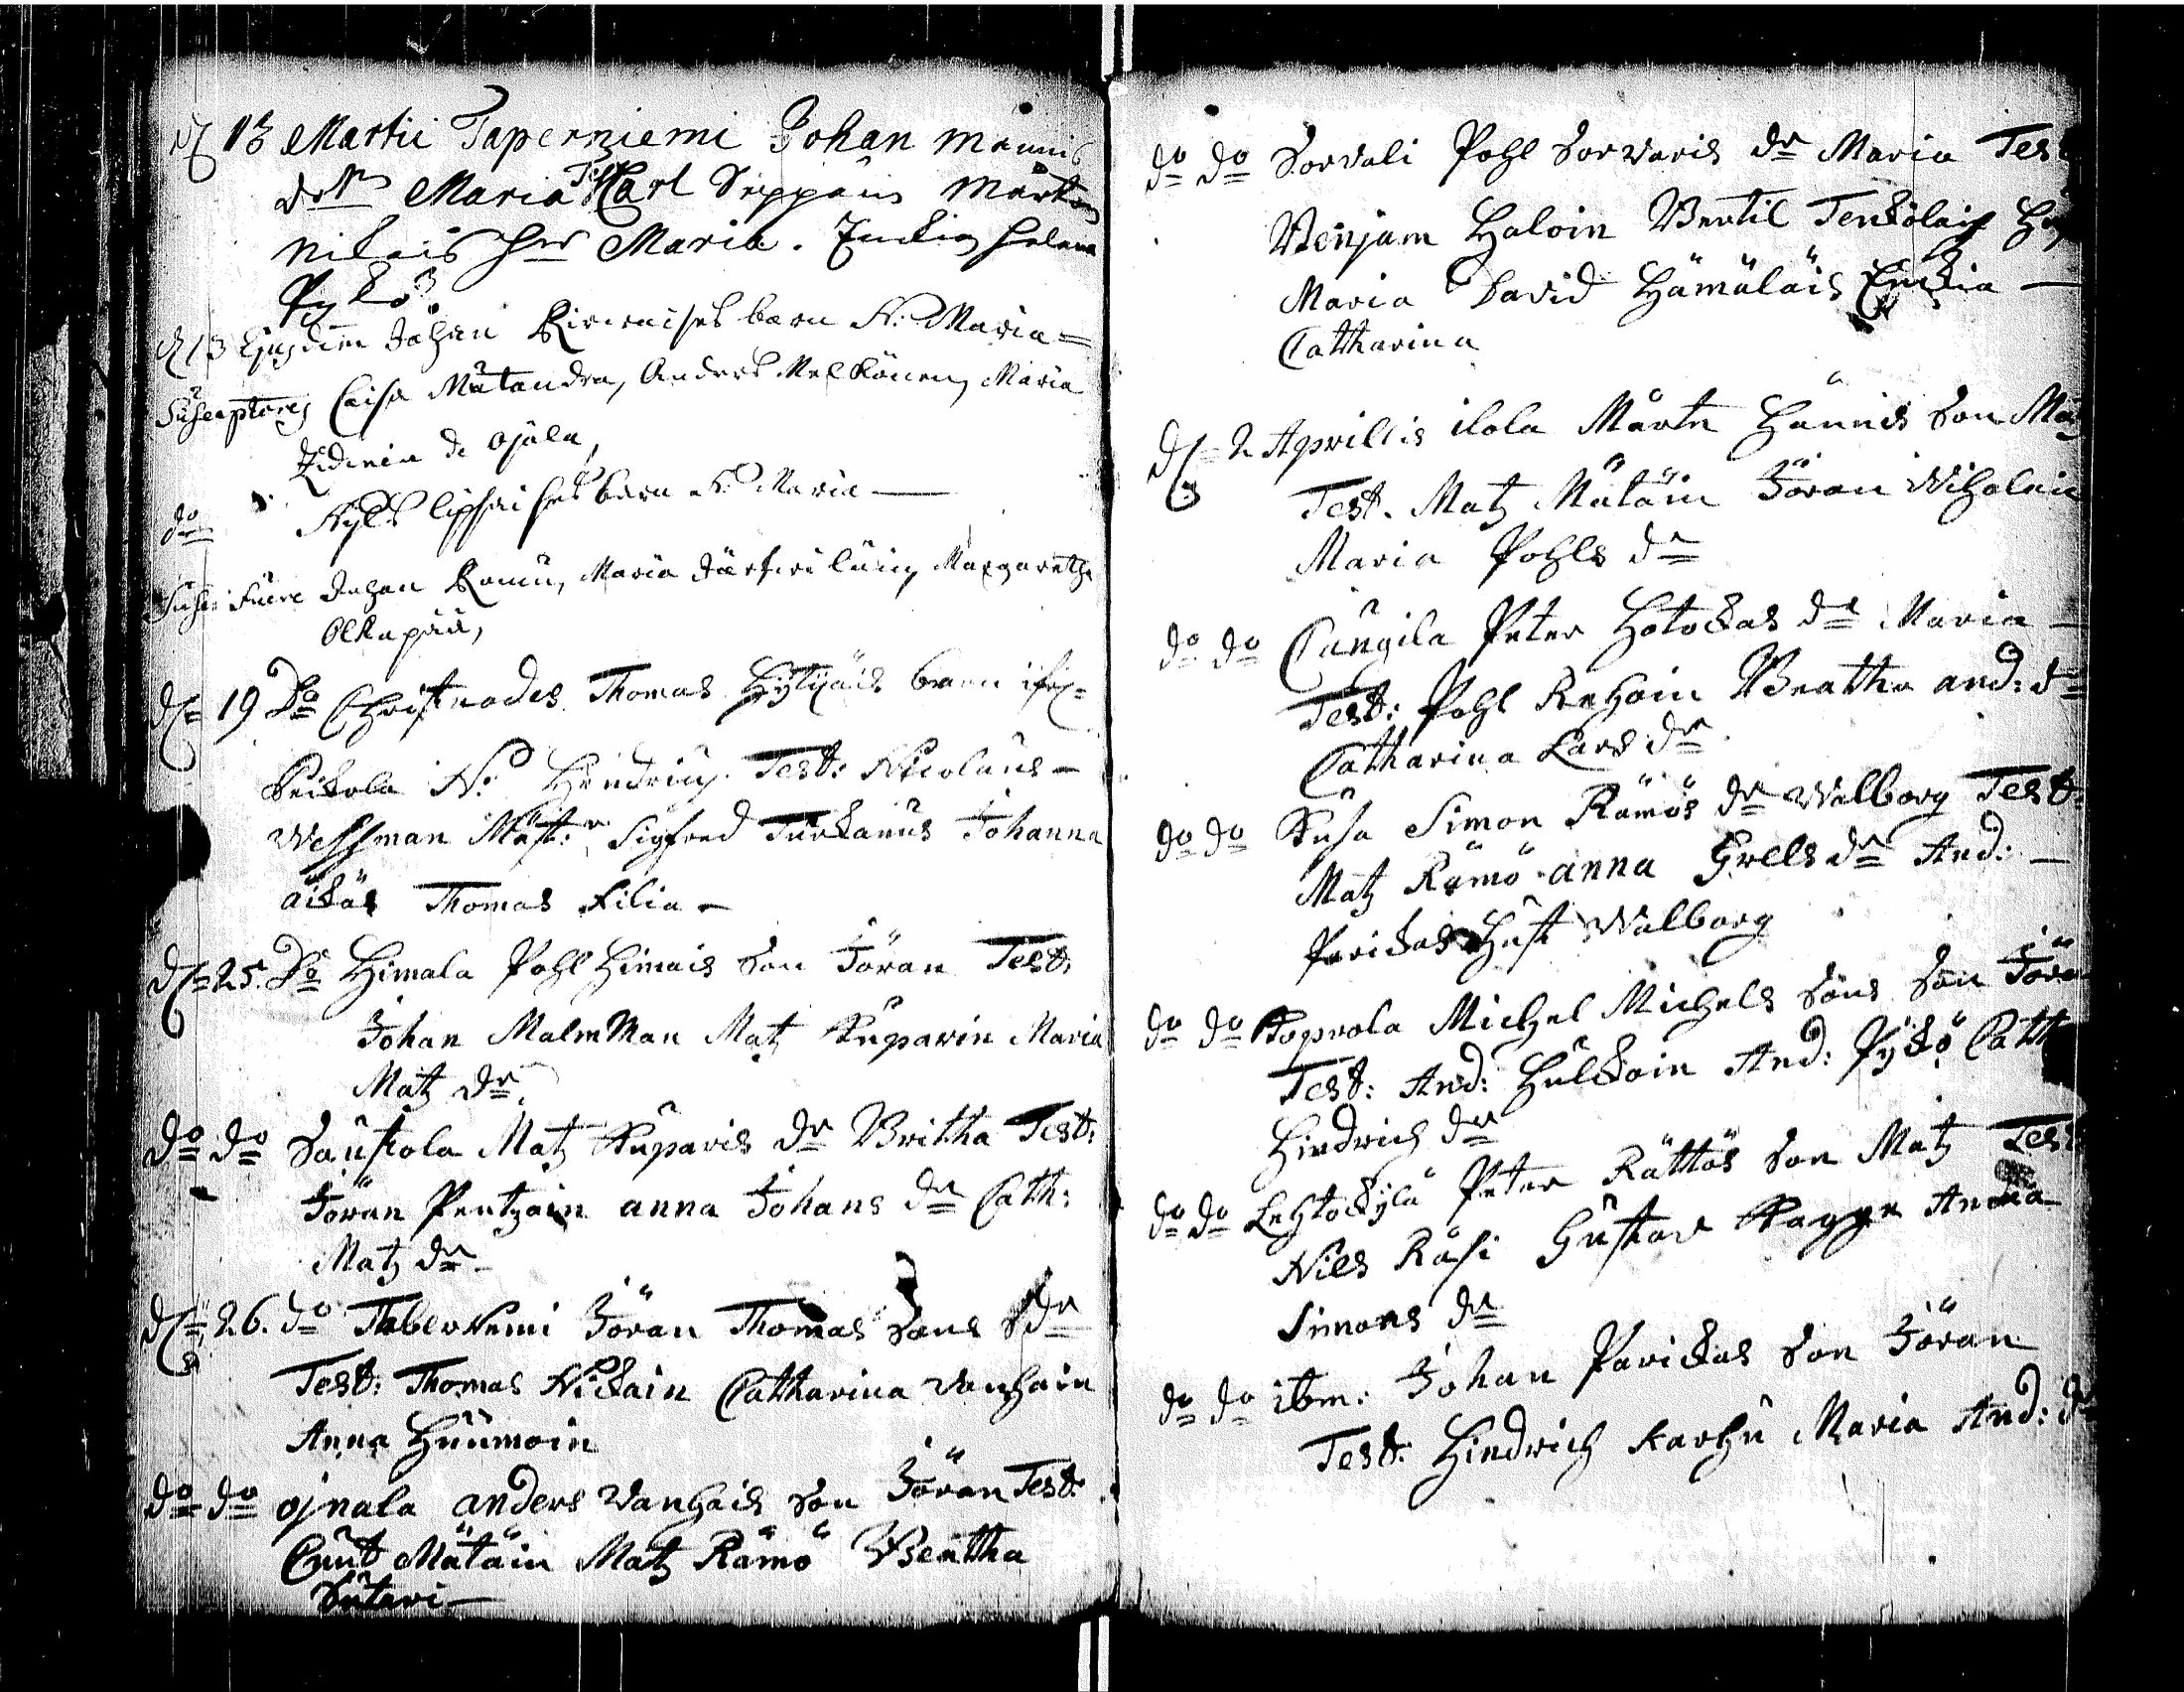 13 Martii Taperniemi Johan Männis
dr Maria Test Carl Seppäin Mårten
Nikais hu Maria. Enckia helena
Pykö
13 Johan Kirwaises barn N. Maria=
Susceptores Caisa Mätandra, Anders Melkönen, Maria
de Ojala,
do barn N. Maria —
fuere Johan Ramu, Maria Margaretha
Olkapää,
d 19 Do Christnades Thomas Hytyäis barn ifrån
Peickola N. Hendrich. Test: Nicolaus —
Wessman Mäst:r Sigfred Turkanus Johanna
äikäs Thomas Filia —
d 25. Do Himala Pohl Himais Son Jöran Test:
Johan MalmMan Matz Kuparin Maria
Matz dr
do do Saustola Matz Kuparis dr Britha Test:
Jöran Pentzoin anna Johans dr Cath:
Matz dr
d 26. do Taberniemi Jöran Thomas Sons dr
Test: Thomas Nickain Catharina Vanhain
Anna Huumoin
do do ojnala anders Vanhais Son Jöran Test:
Cnut Mätäin Matz Rämö Beatha
Suteri —
do do Sorvali Pohl Sorvaris dr Maria Test
Benjam Haloin Bertil Tenkölais
Maria David Hämäläis Enckia —
Catharina
d 2 Aprillis ilola Mårtn Hännis Son
Test. Matz Mätäin Jöran Wiholain
Maria Pohls dr
do do Cangila Peter Hotockas dr Maria —
Test: Pohl Rehoin Beatha and: dr
Catharina Lars dr
do do Kusa Simon Rämös dr Walborg Test:
Matz Rämö anna Grels dr And: —
Parickas Hust Walborg
do do Koprola Michel Michels Sons Son Jöra
Test: And: Hulckoin And: Pykö Cath
Hindrich dr
do do Lehtockylä Peter Rättös Son Matz Test
Nils Räsi Gustav Kagge Anna
Simons dr
do do ibm: Johan Parickas Son Jöran
Test: Hindrich Karhu Maria And: dr